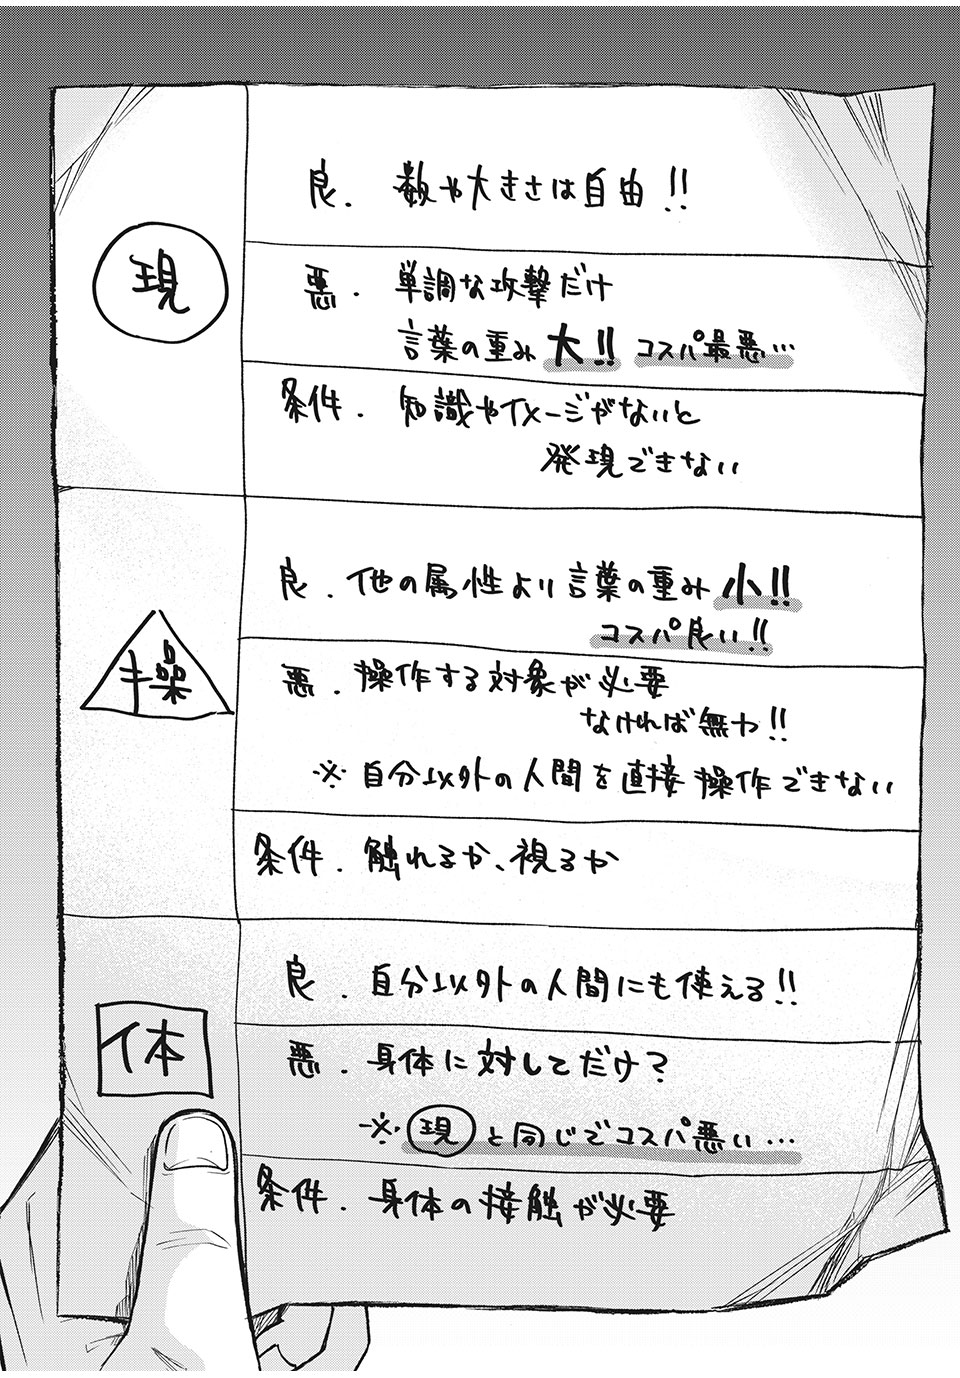 現
良. 数や大きさは自由!!
悪. 単調な攻撃だけ
言葉の重み 大!! コスパ最悪…
条件. 知識やイメージがないと
発現できない
操
良. 他の属性より言葉の重み 小!!
コスパ良い!!
悪. 操作する対象が必要
なければ無力!!
※自分以外の人間を直接操作できない
条件. 触れるか、視るか
体
良. 自分以外の人間にも使える!!
悪. 身体に対してだけ?
※現と同じでコスパ悪い…
条件. 身体の接触が必要